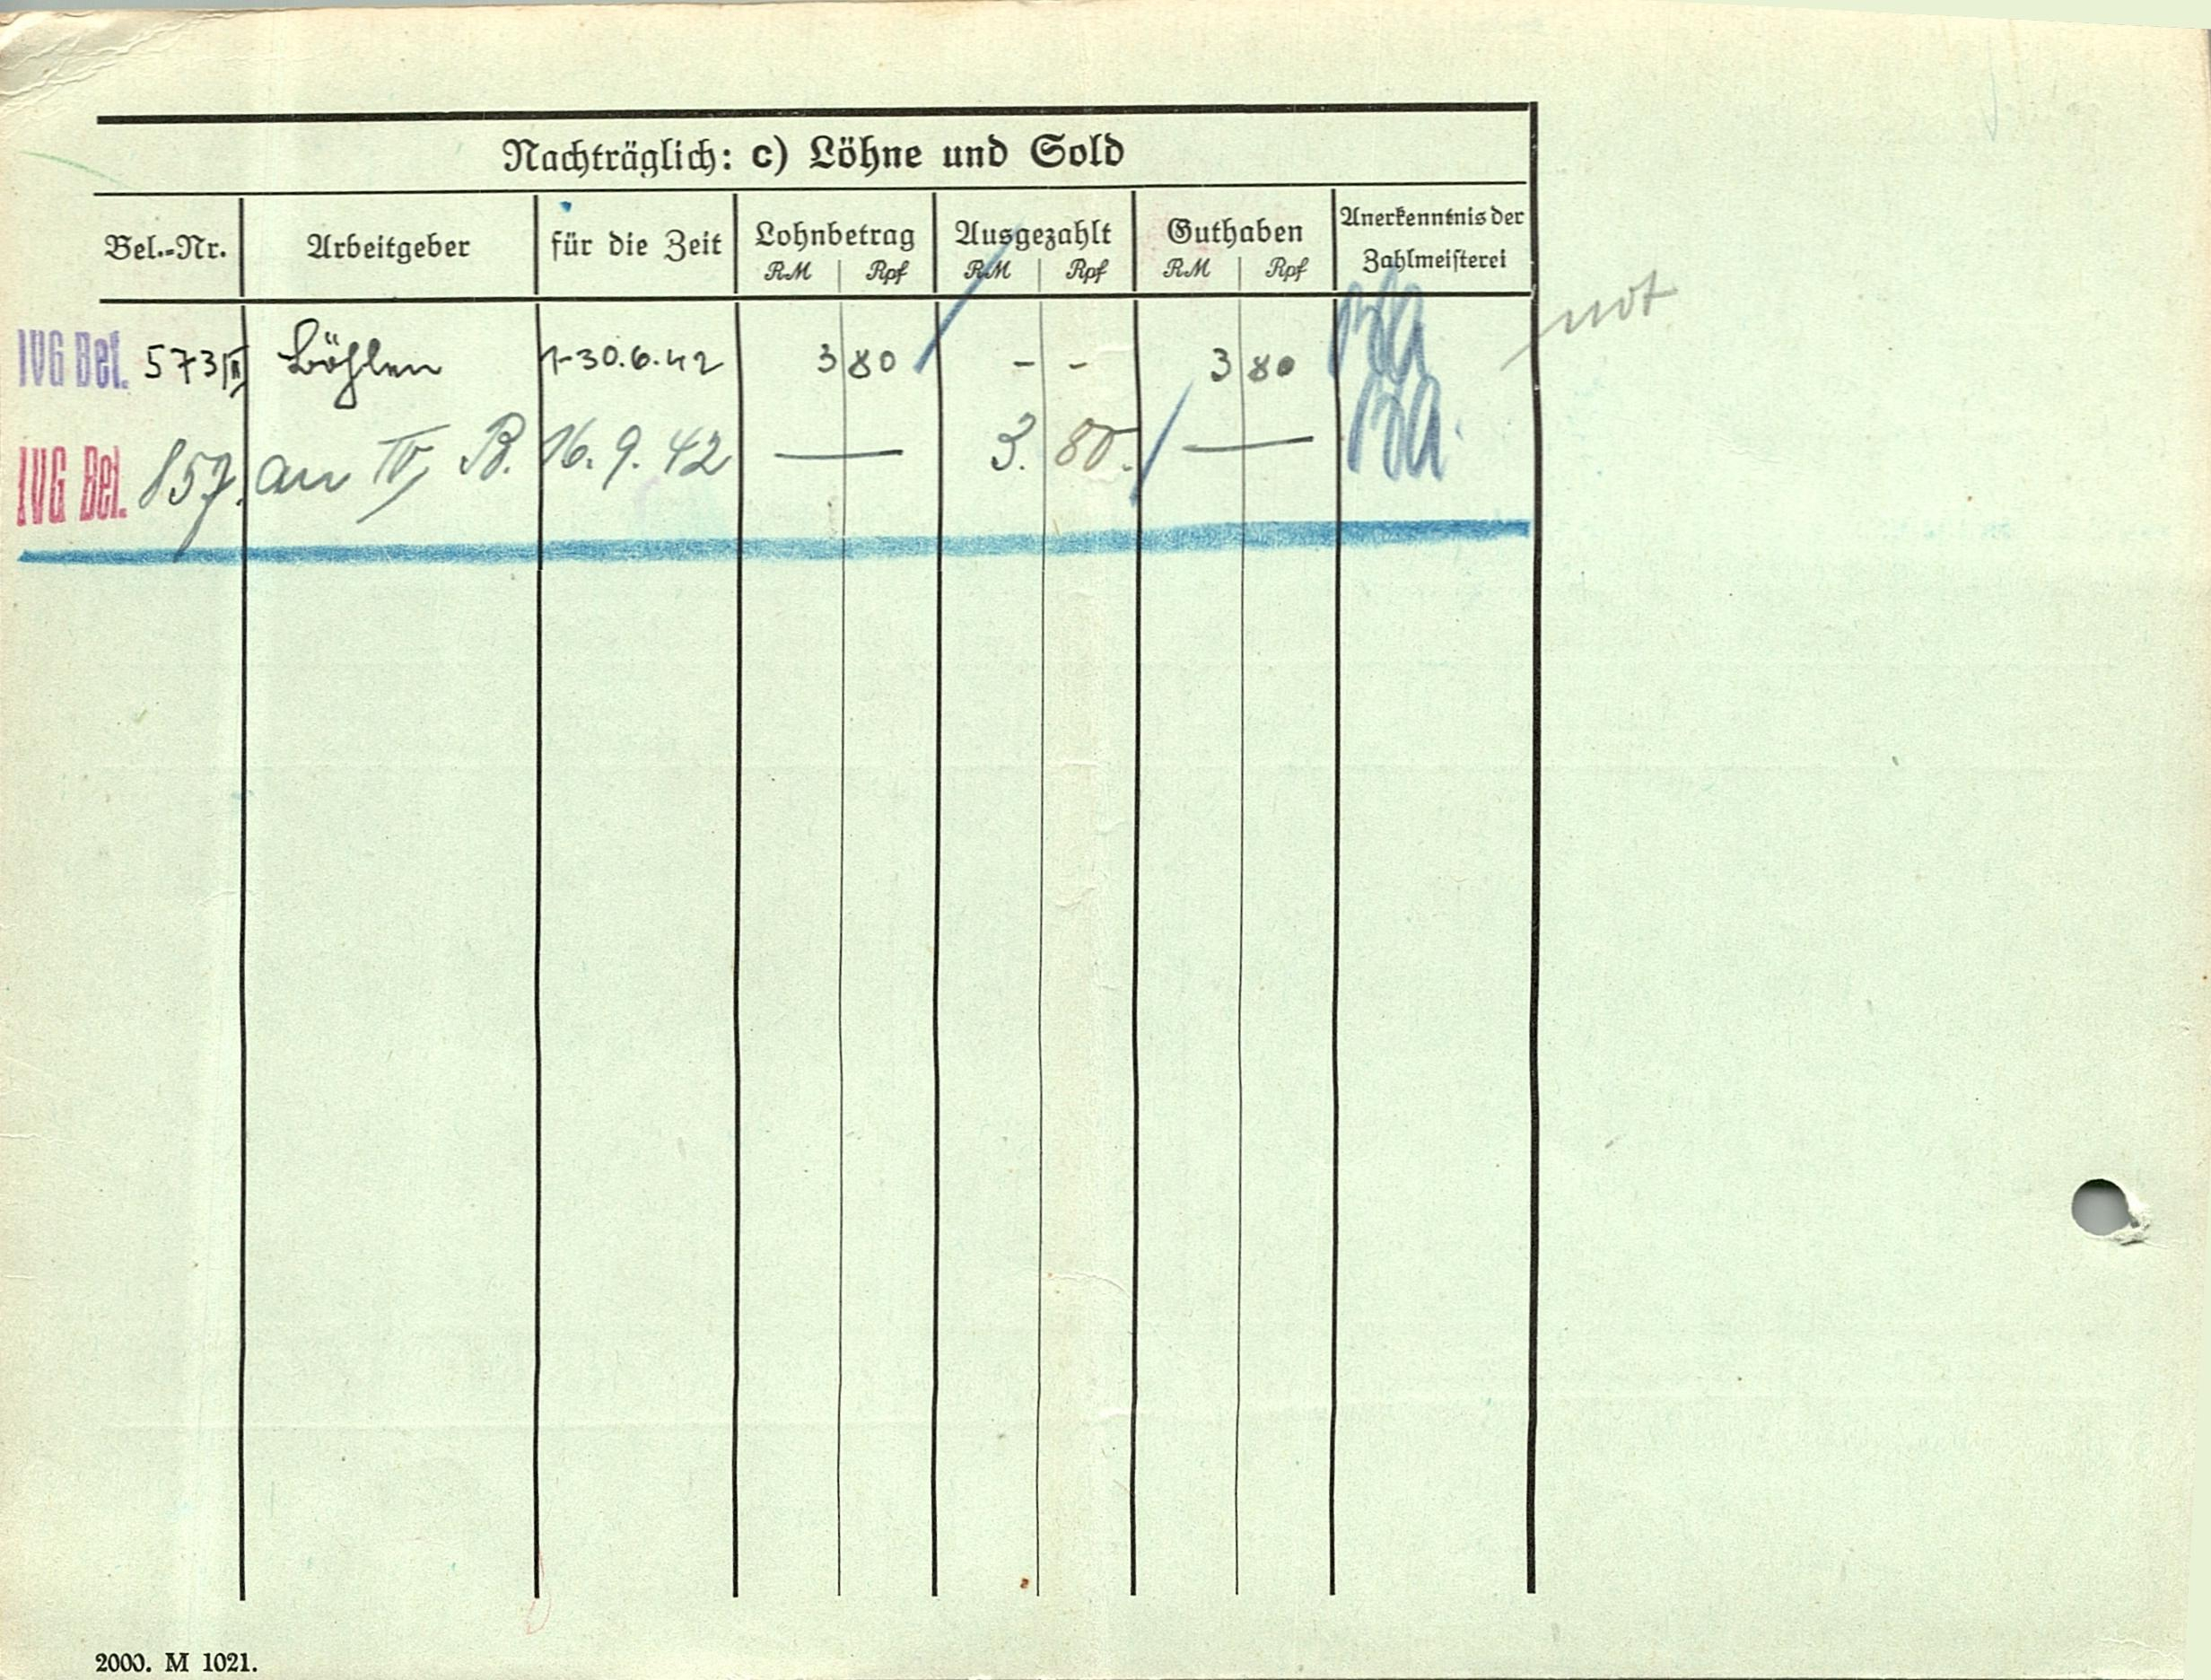 Nachträglich: c) Löhne und Sold
Bel.-Nr. Arbeitgeber für die Zeit Lohnbetrag RM Rpf Ausgezahlt RM Rpf Guthaben RM Rpf Anerkenntnis der Zahlmeisterei
IVG Bel. 573/II Böhlen 1-30.6.42 3 80 - - 3 80
IVG Bel. 857. an IV, B. 16.9.42 — 3. 80. —
2000. M 1021.